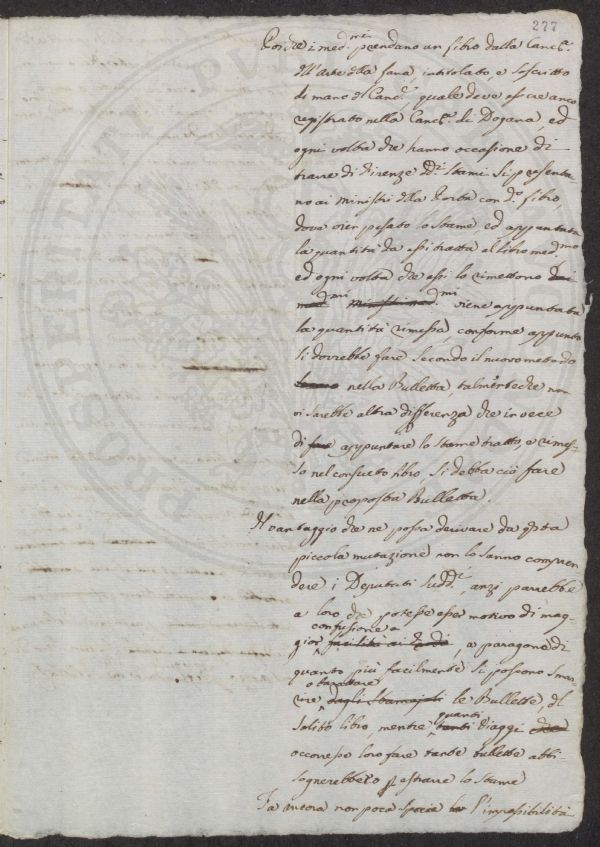 277
Poiche i med.mi prendano un libro dalla Canc.a
dell'Arte della Lana, intitolato, e soscritto
di mano del Canc.e quale deve essere anco
registrato nella Canc.a di Dogana, ed
ogni volta che hanno occasione di
trarre di Firenze d.i Stami si presenta-
no ai Ministri della Porta con d.o libro,
dove vien pesato lo Stame ed appuntata
la quantità da essi tratta al libro med.mo
ed ogni volta che essi lo rimettono dai
med.mi Ministri med.mi viene appuntata
la quantità rimessa, conforme appunto
si dovrebbe fare secondo il nuovo metodo
nella Bulletta, talmenteche non
vi sarebbe altra differenza che in vece
di fare appuntare lo Stame tratto, e rimes-
so nel consueto libro, si debba ciò fare
nella proposta Bulletta.
Il vantaggio che ne possa derivare da q.sta
piccola mutazione non lo sanno compren
dere i Deputati Sudd.i, anzi parrebbe
a loro che potesse esser motivo di mag-
gior confusione a facilità ai, a paragone di
quanto più facilmente si possono smar
rire o barattare dagli Stamajoli le Bullette, del
solito libro, mentre quanti tanti viaggi che
occorresse loro fare tante bullette abbi-
sognerebbero p estrarre lo Stame
Fa ancora non poca specie l'impossibilità